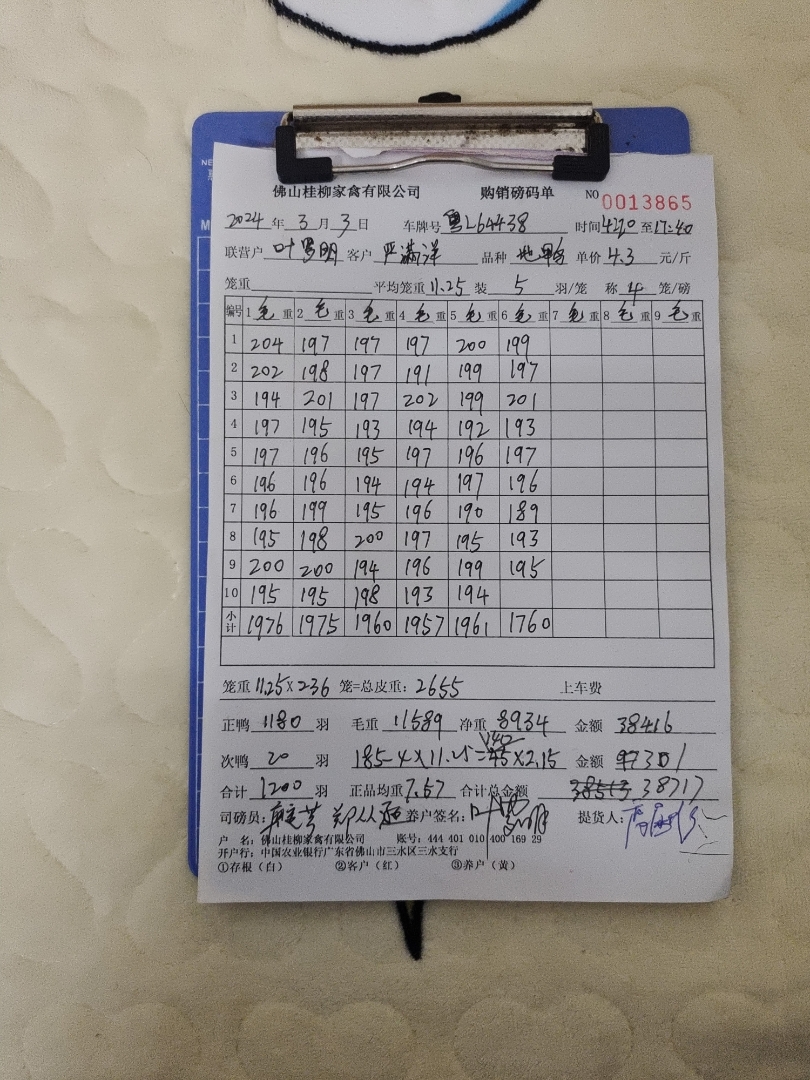 佛山桂柳家禽有限公司 购销磅码单 NO 0013865
2024年3月3日 车牌号 粤L64438 时间 至17:40
联营户 叶罗明 客户 严满洋 品种 单价 4.3 元/斤
笼重 平均笼重 11.25 装 5 羽/笼 称 4 笼/磅
编号 1 毛重 2 毛重 3 毛重 4 毛重 5 毛重 6 毛重 7 毛重 8 毛重 9 毛重
1 204 197 197 197 200 199
2 202 198 197 191 199 197
3 194 201 197 202 199 201
4 197 195 193 194 192 193
5 197 196 195 197 196 197
6 196 196 194 194 197 196
7 196 199 195 196 190 189
8 195 198 200 197 195 193
9 200 200 194 196 199 195
10 195 195 198 193 194
小计 1976 1975 1960 1957 1961 1760
笼重 11.25×236 笼=总皮重:2655 上车费
正鸭 1180 羽 毛重 11589 净重 8934 金额 38416
140
次鸭 20 羽 185-4×11.25= ×2.15 金额 301
合计 1200 羽 正品均重 7.57 合计总金额 38513 38717
司磅员: 养户签名:叶罗明 提货人:
户 名:佛山桂柳家禽有限公司 账号:444 401 010 400 169 29
开户行:中国农业银行广东省佛山市三水区三水支行
①存根(白) ②客户(红) ③养户(黄)